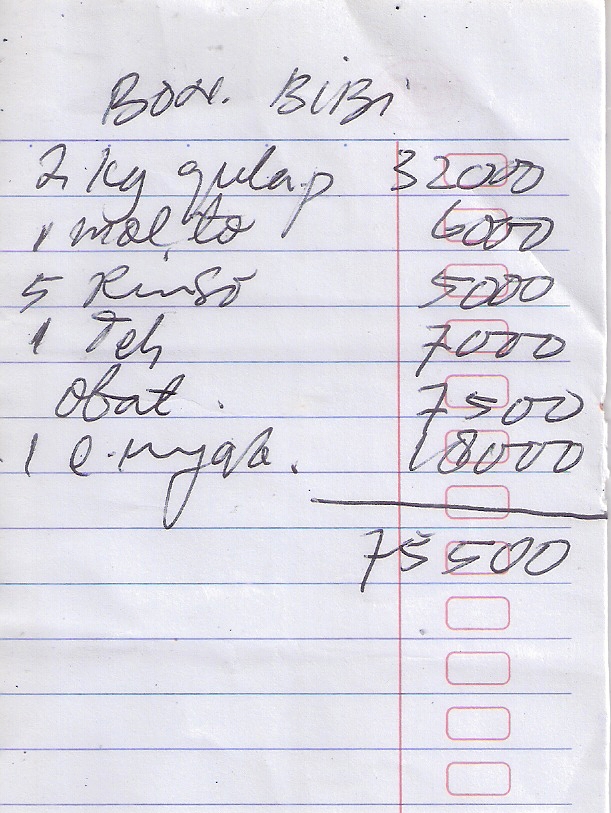 Bon. BiBi
2 kg gulap 32000
1 mol,to 6000
5 Rinso 5000
1 Teh 7000
obat. 7500
1 18000
75500